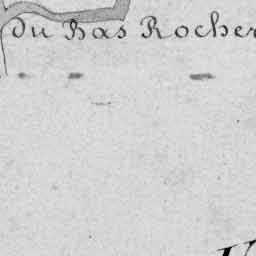 du Bas Rocher